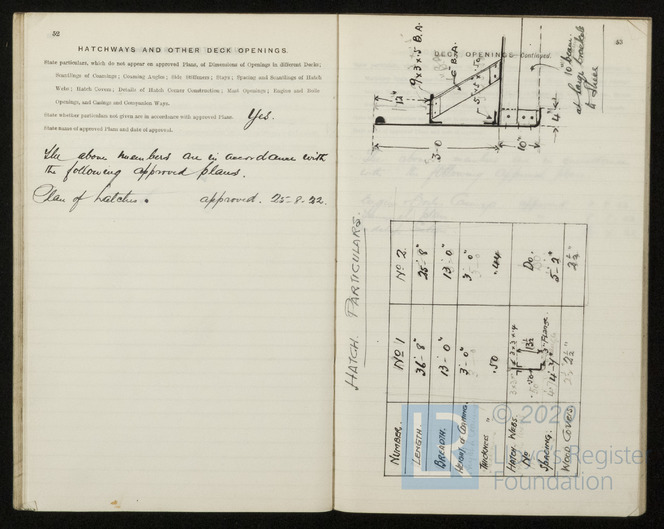 52
HATCHWAYS AND OTHER DECK OPENINGS.
State particulars, which do not appear on approved Plans, of Dimensions of Openings in different Decks;
Scantlings of Coamings; Coaming Angles; Side Stiffeners; Stays; Spacing and Scantlings of Hatch
Webs; Hatch Covers; Details of Hatch Corner Construction; Mast Openings; Engine and Boiler
Openings, and Casings and Companion Ways.
State whether particulars not given are in accordance with approved Plans. Yes.
State name of approved Plans and date of approval.
The above members are in accordance with
the following approved plans.
Plan of hatches. approved. 25-8-22.
53
DECK OPENINGS Continued.
9 x 3 x .5 B.A.
6" B.A.
12"
3-0
10"
4"
10" beam
at large brackets
HATCH PARTICULARS.
NUMBER. No 1 No 2.
LENGTH. 36'-8" 25'-8"
BREADTH. 13'-0" 13'-0"
HEIGHT OF COAMING. 3'-0" 3'-0"
THICKNESS " .50 .44
HATCH WEBS.
No Do.
SPACING. 5'-2"
WOOD COVERS 2½" 2½"
© 2020
Lloyd's Register
Foundation